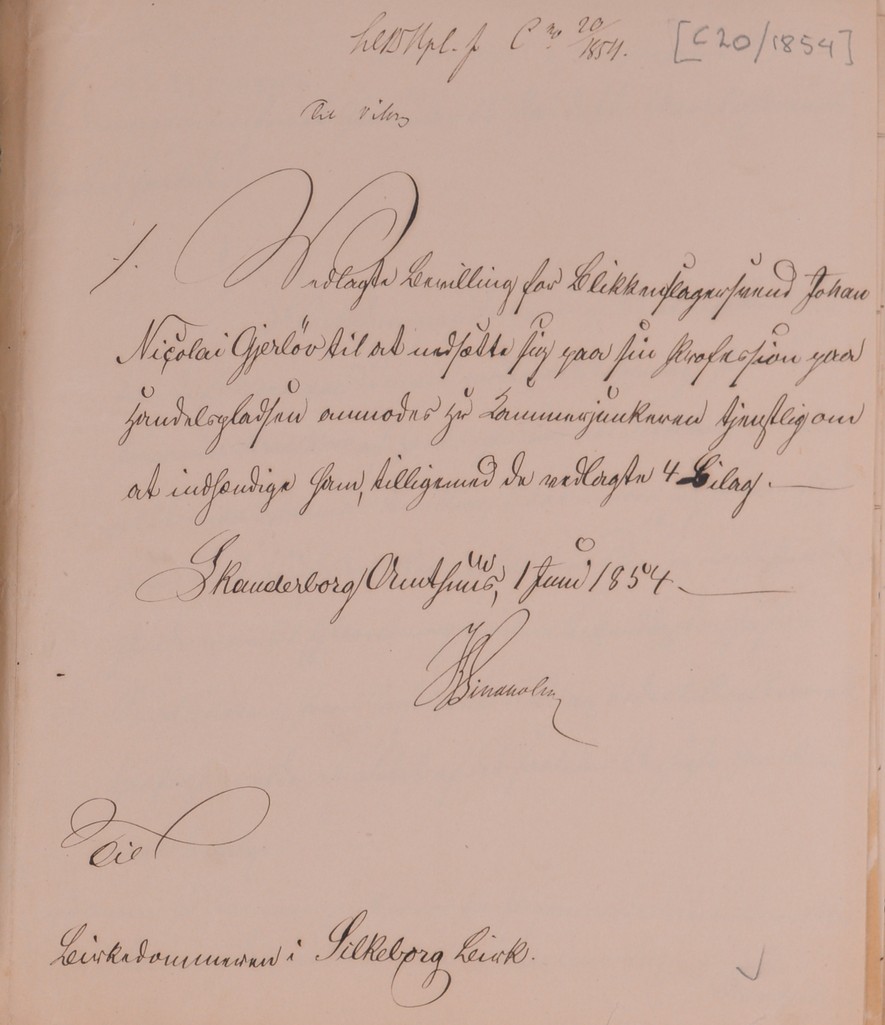 C No 20/1854. [C20/1854]
./.
Vedlagte Bevilling for Blikkenslagersvend Johan
Nicolai Gjerløv til at nedsætte sig paa sin Profession paa
Handelspladsen anmodes Hr Kammerjunkeren tjenstlig om
at indhændige ham, tilligemed de vedlagte 4 Bilag.
Skanderborg Amthuus, 1 Juni 1854.
Til
Birkedommeren i Silkeborg Birk.